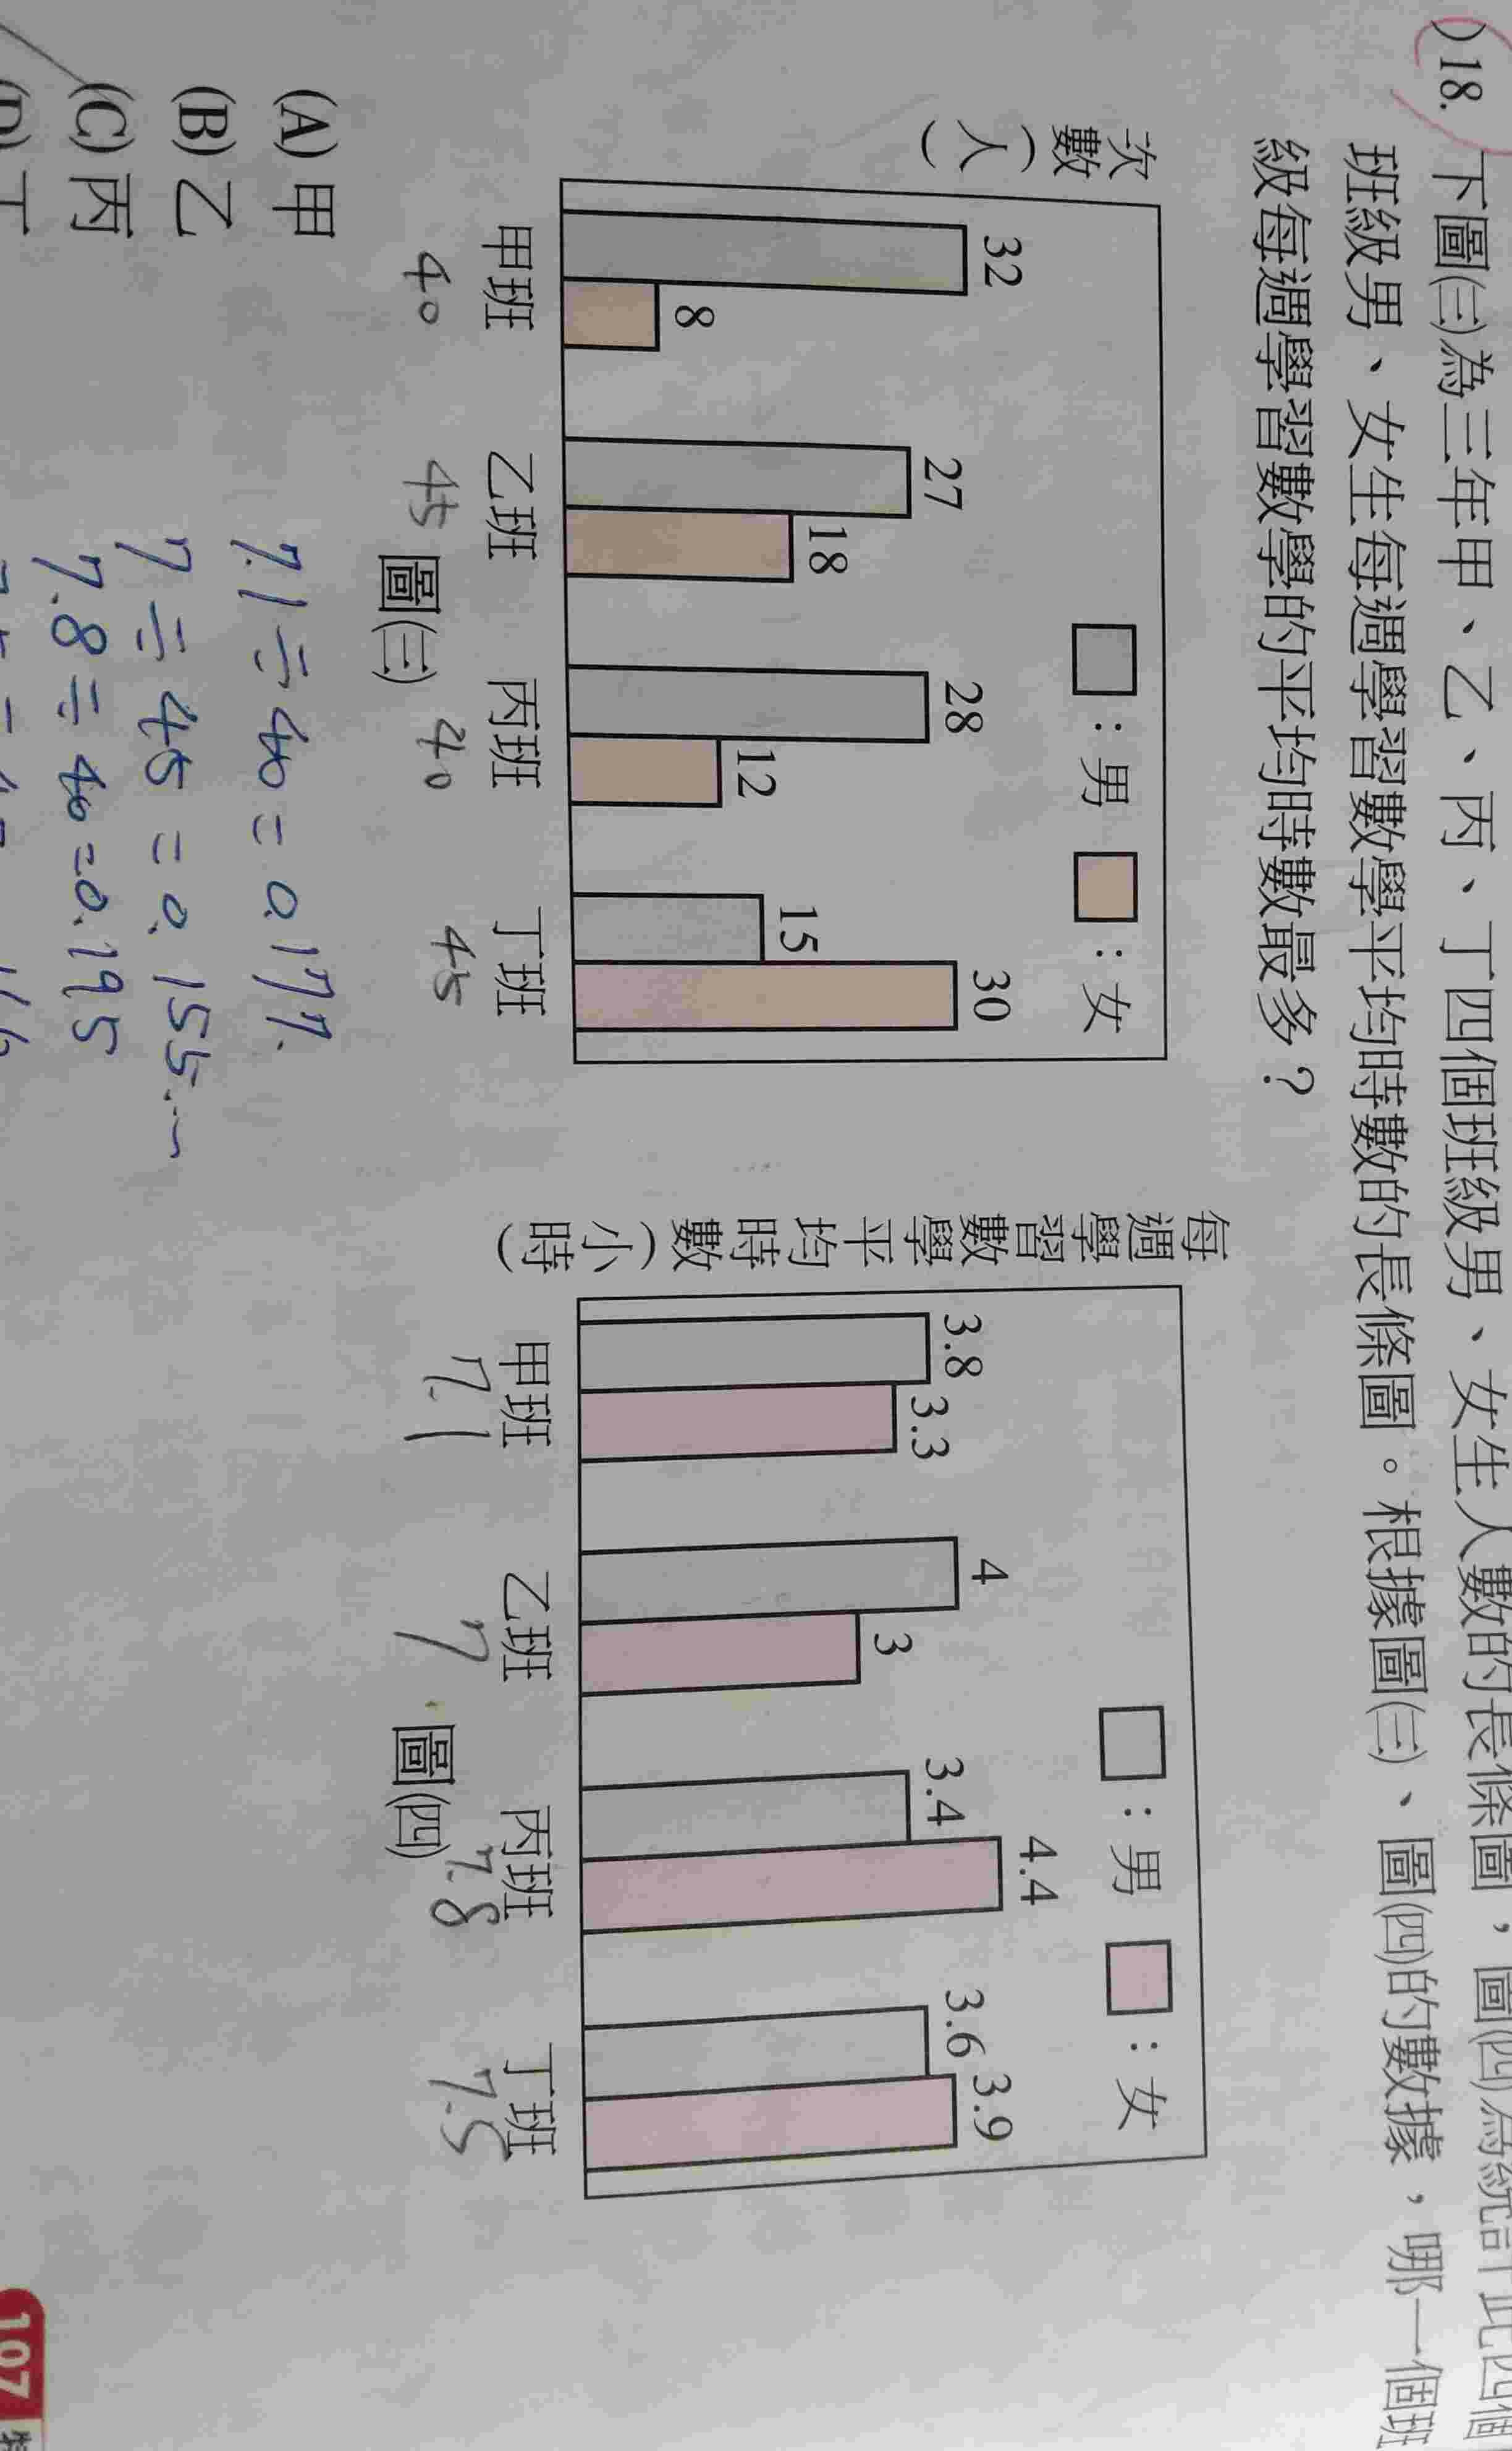 )18. 下圖㈢為三年甲、乙、丙、丁四個班級男、女生人數的長條圖，圖㈣為統計此四個
班級男、女生每週學習數學平均時數的長條圖。根據圖㈢、圖㈣的數據，哪一個班
級每週學習數學的平均時數最多？
次數(人)
：男 ：女
32 8 27 18 28 12 15 30
甲班 乙班 丙班 丁班
40 45 40 45
圖㈢
每週學習數學平均時數(小時)
：男 ：女
3.8 3.3 4 3 3.4 4.4 3.6 3.9
甲班 乙班 丙班 丁班
7.1 7 7.8 7.5
圖㈣
(A) 甲
7.1÷40=0.177.
(B) 乙
7÷45=0.155...
(C) 丙
7.8÷40=0.195
(D) 丁
107